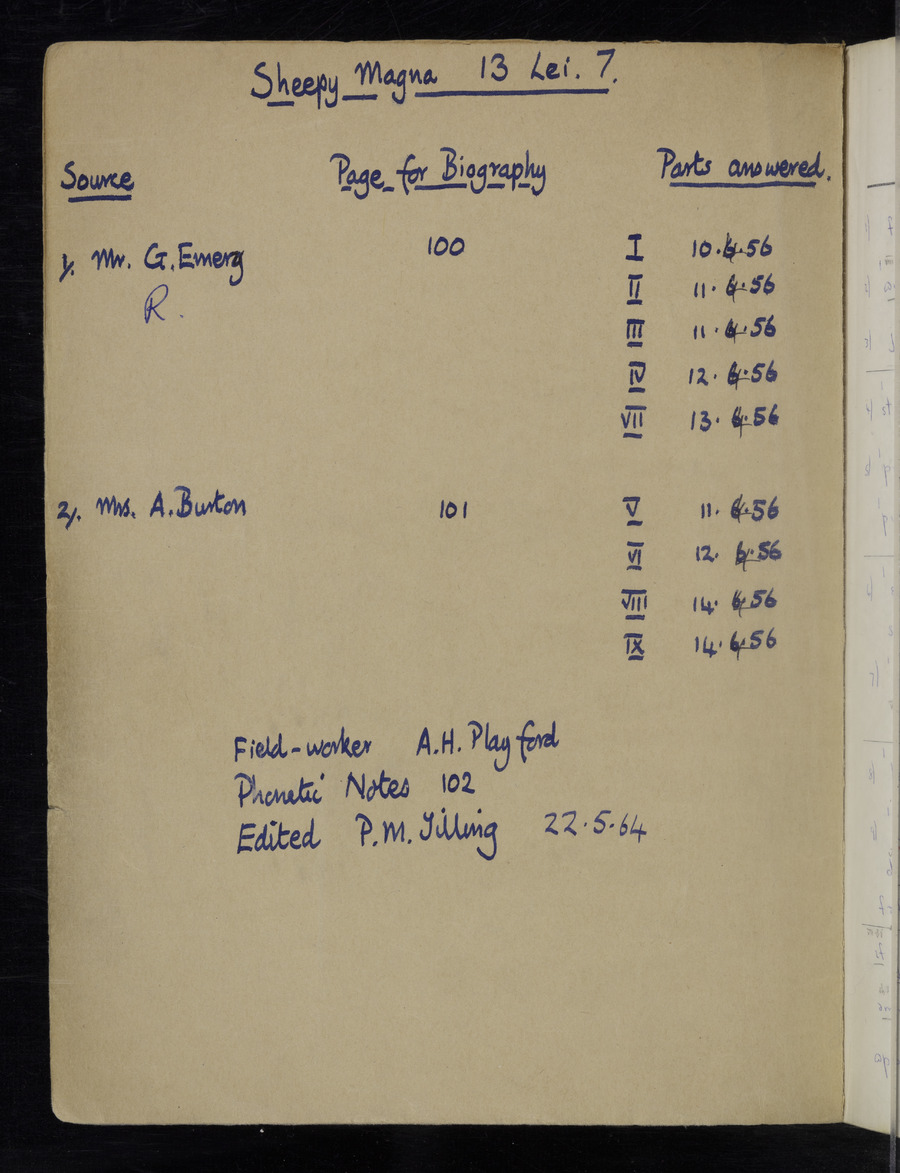 Sheepy Magna 13 Lei. 7.
Source Page for Biography Parts answered.
1/. Mr. G. Emery 100 I 10.4.56
R. II 11.4.56
III 11.4.56
IV 12.4.56
VII 13.4.56
2/. Mrs. A. Burton 101 V 11.4.56
VI 12.4.56
VIII 14.4.56
IX 14.4.56
Field-worker A.H. Playford
Phonetic Notes 102
Edited P.M. Tilling 22.5.64